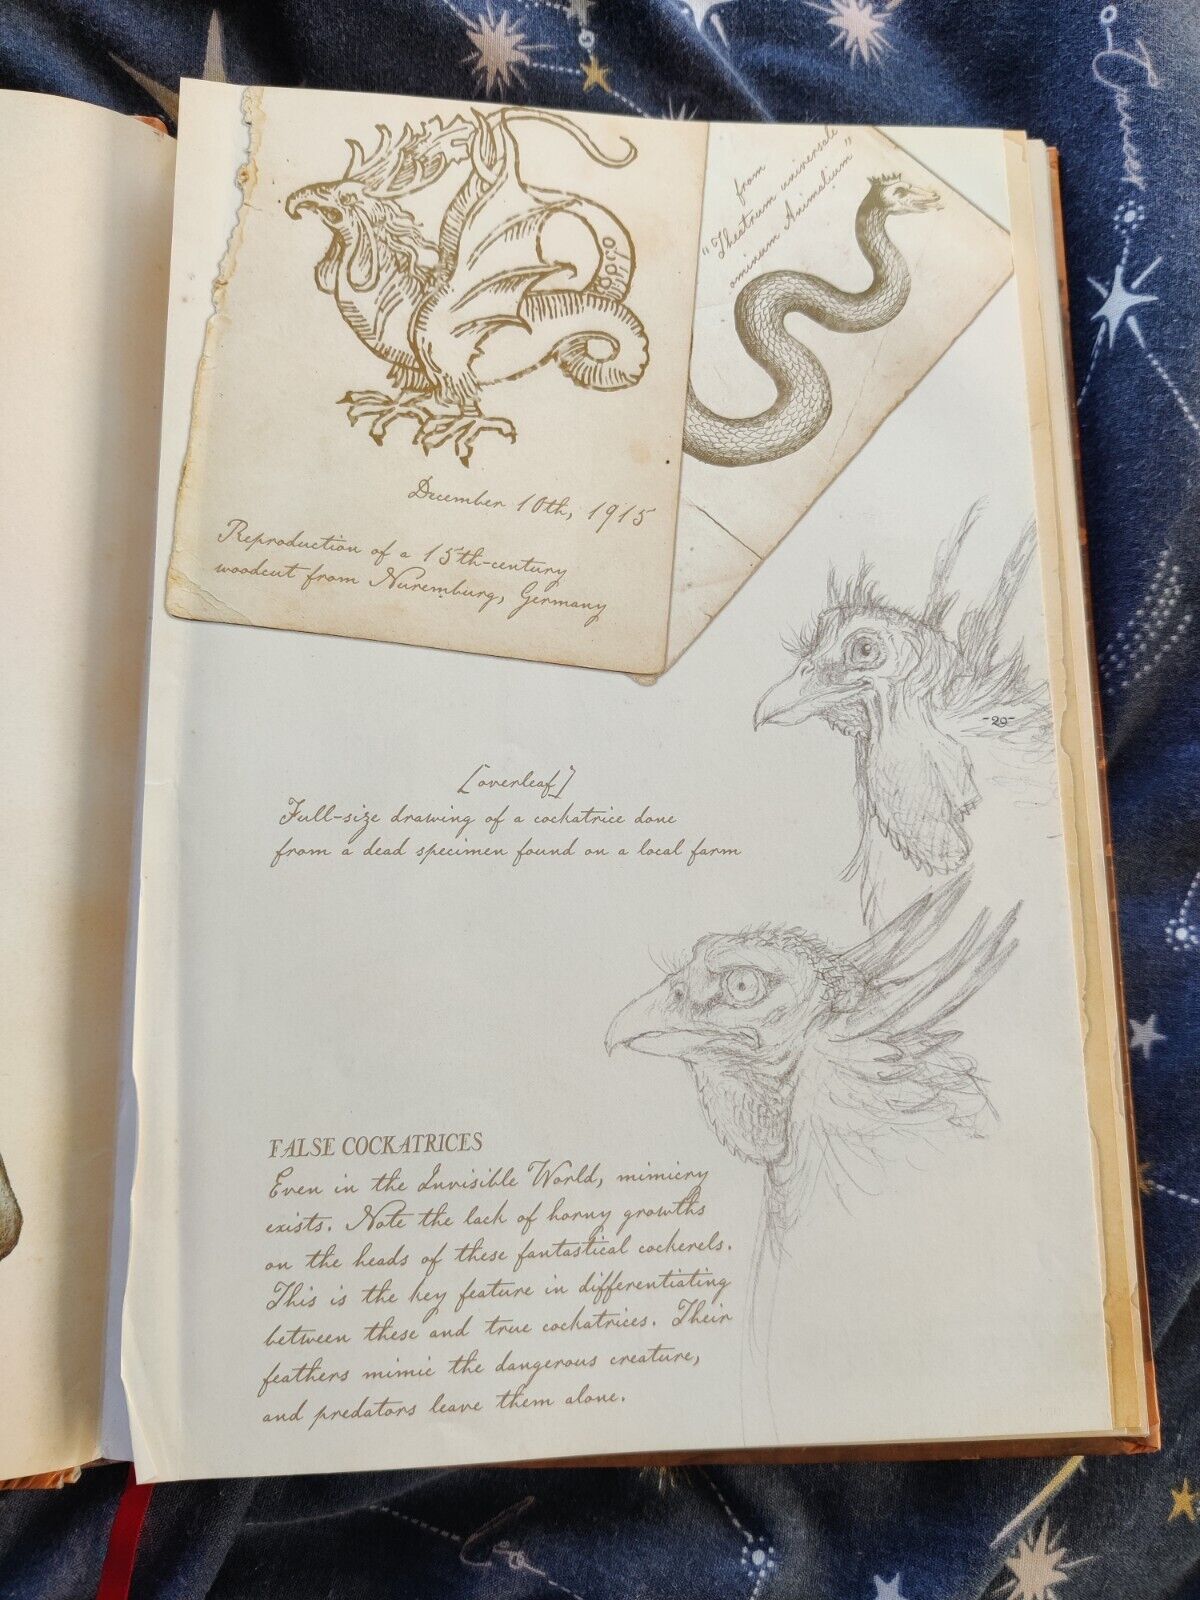 from
"Theatrum universale
ominum Animalium"
December 10th, 1915
Reproduction of a 15th-century
woodcut from Nuremburg, Germany
-29-
[overleaf]
Full-size drawing of a cockatrice done
from a dead specimen found on a local farm
FALSE COCKATRICES
Even in the Invisible World, mimicry
exists. Note the lack of horny growths
on the heads of these fantastical cockerels.
This is the key feature in differentiating
between these and true cockatrices. Their
feathers mimic the dangerous creature,
and predators leave them alone.